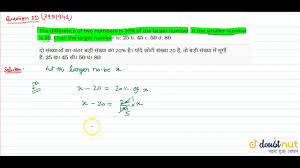 Question ID (3951941)
The difference of two numbers is 20% of the larger number. If the smaller number
is 20, find the larger number is: 25 b. 45 c. 50 d. 80
दो संख्याओं का अंतर बड़ी संख्या का 20% है। यदि छोटी संख्या 20 है, तो बड़ी संख्या
है: 25 या 45 सी। 50 घ। 80
Solution: Let the larger no be x
x - 20 = 20% of x
x - 20 = 20/100 × x
5
doubtnut